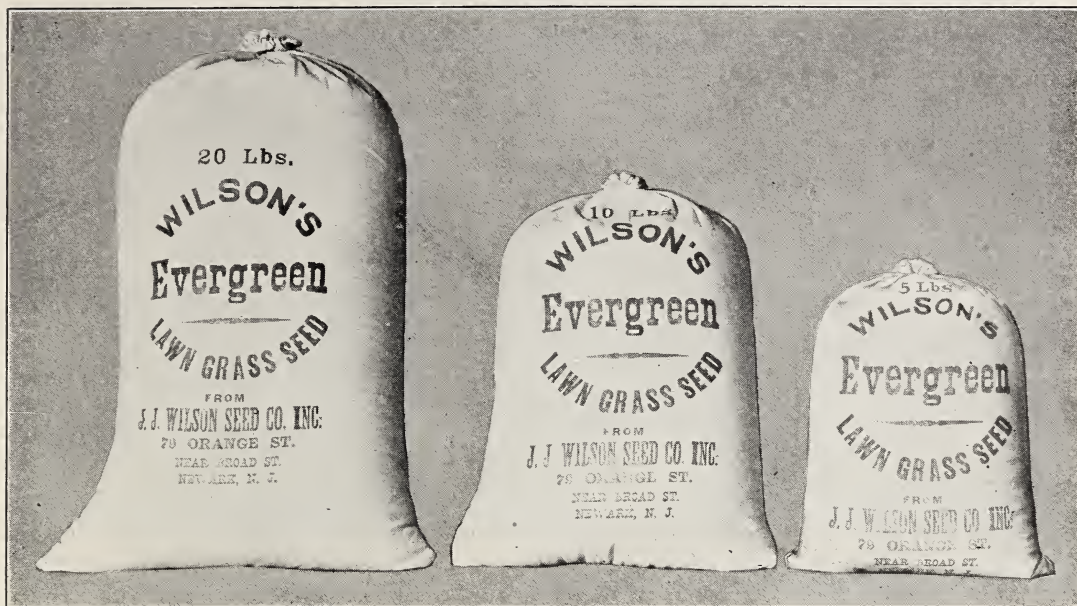 20 Lbs.
WILSON'S
Evergreen
LAWN GRASS SEED
FROM
J. J. WILSON SEED CO. INC:
79 ORANGE ST.
NEAR BROAD ST.
NEWARK, N. J.
10 Lbs
WILSON'S
Evergreen
LAWN GRASS SEED
FROM
J. J. WILSON SEED CO. INC:
79 ORANGE ST.
NEAR BROAD ST.
NEWARK, N. J.
5 Lbs
WILSON'S
Evergreen
LAWN GRASS SEED
FROM
J. J. WILSON SEED CO INC:
79 ORANGE ST.
NEAR BROAD ST.
N. J.